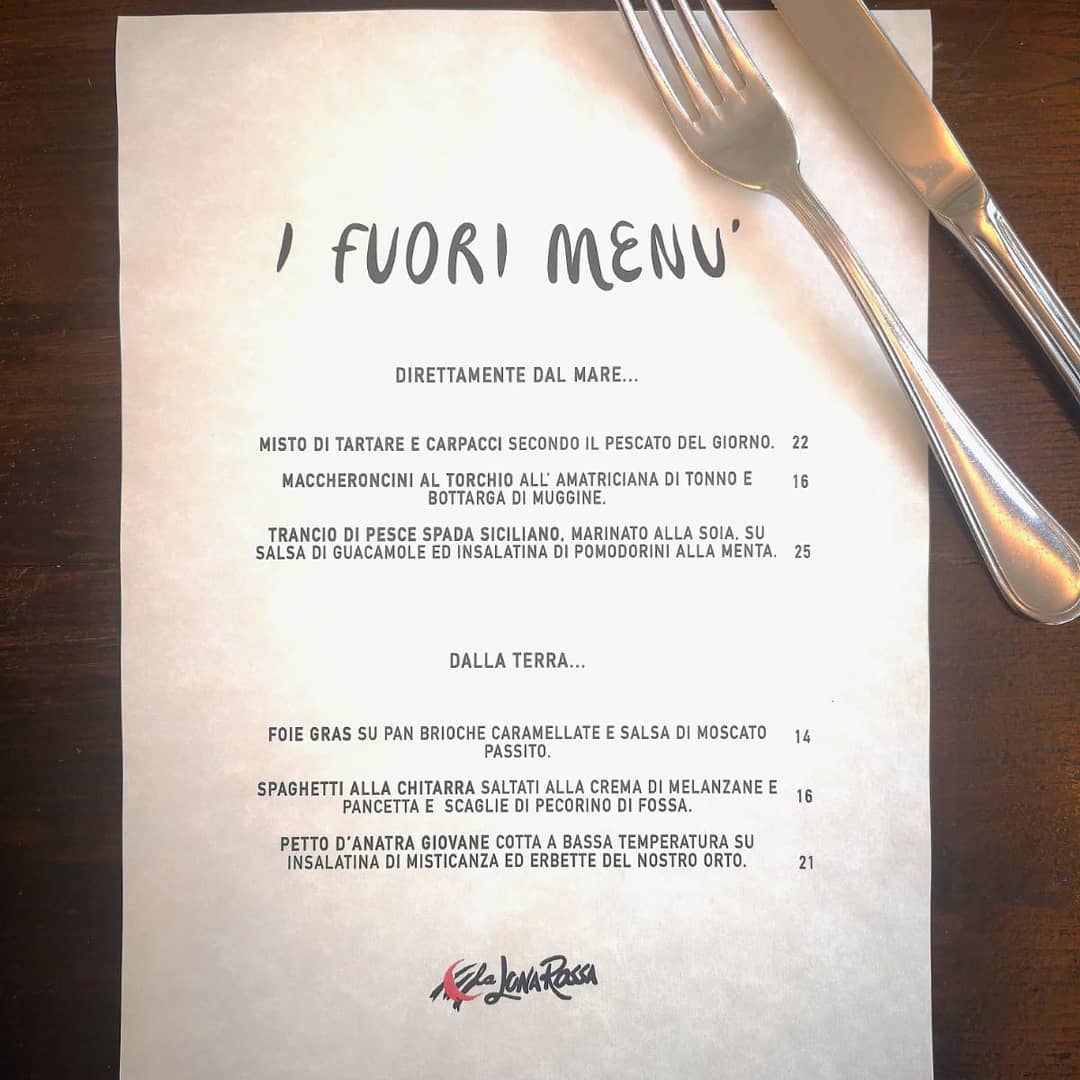 I FUORI MENU'
DIRETTAMENTE DAL MARE...
MISTO DI TARTARE E CARPACCI SECONDO IL PESCATO DEL GIORNO. 22
MACCHERONCINI AL TORCHIO ALL' AMATRICIANA DI TONNO E 16
BOTTARGA DI MUGGINE.
TRANCIO DI PESCE SPADA SICILIANO, MARINATO ALLA SOIA, SU
SALSA DI GUACAMOLE ED INSALATINA DI POMODORINI ALLA MENTA. 25
DALLA TERRA...
FOIE GRAS SU PAN BRIOCHE CARAMELLATE E SALSA DI MOSCATO 14
PASSITO.
SPAGHETTI ALLA CHITARRA SALTATI ALLA CREMA DI MELANZANE E 16
PANCETTA E SCAGLIE DI PECORINO DI FOSSA.
PETTO D'ANATRA GIOVANE COTTA A BASSA TEMPERATURA SU
INSALATINA DI MISTICANZA ED ERBETTE DEL NOSTRO ORTO. 21
La LUNA ROSSA